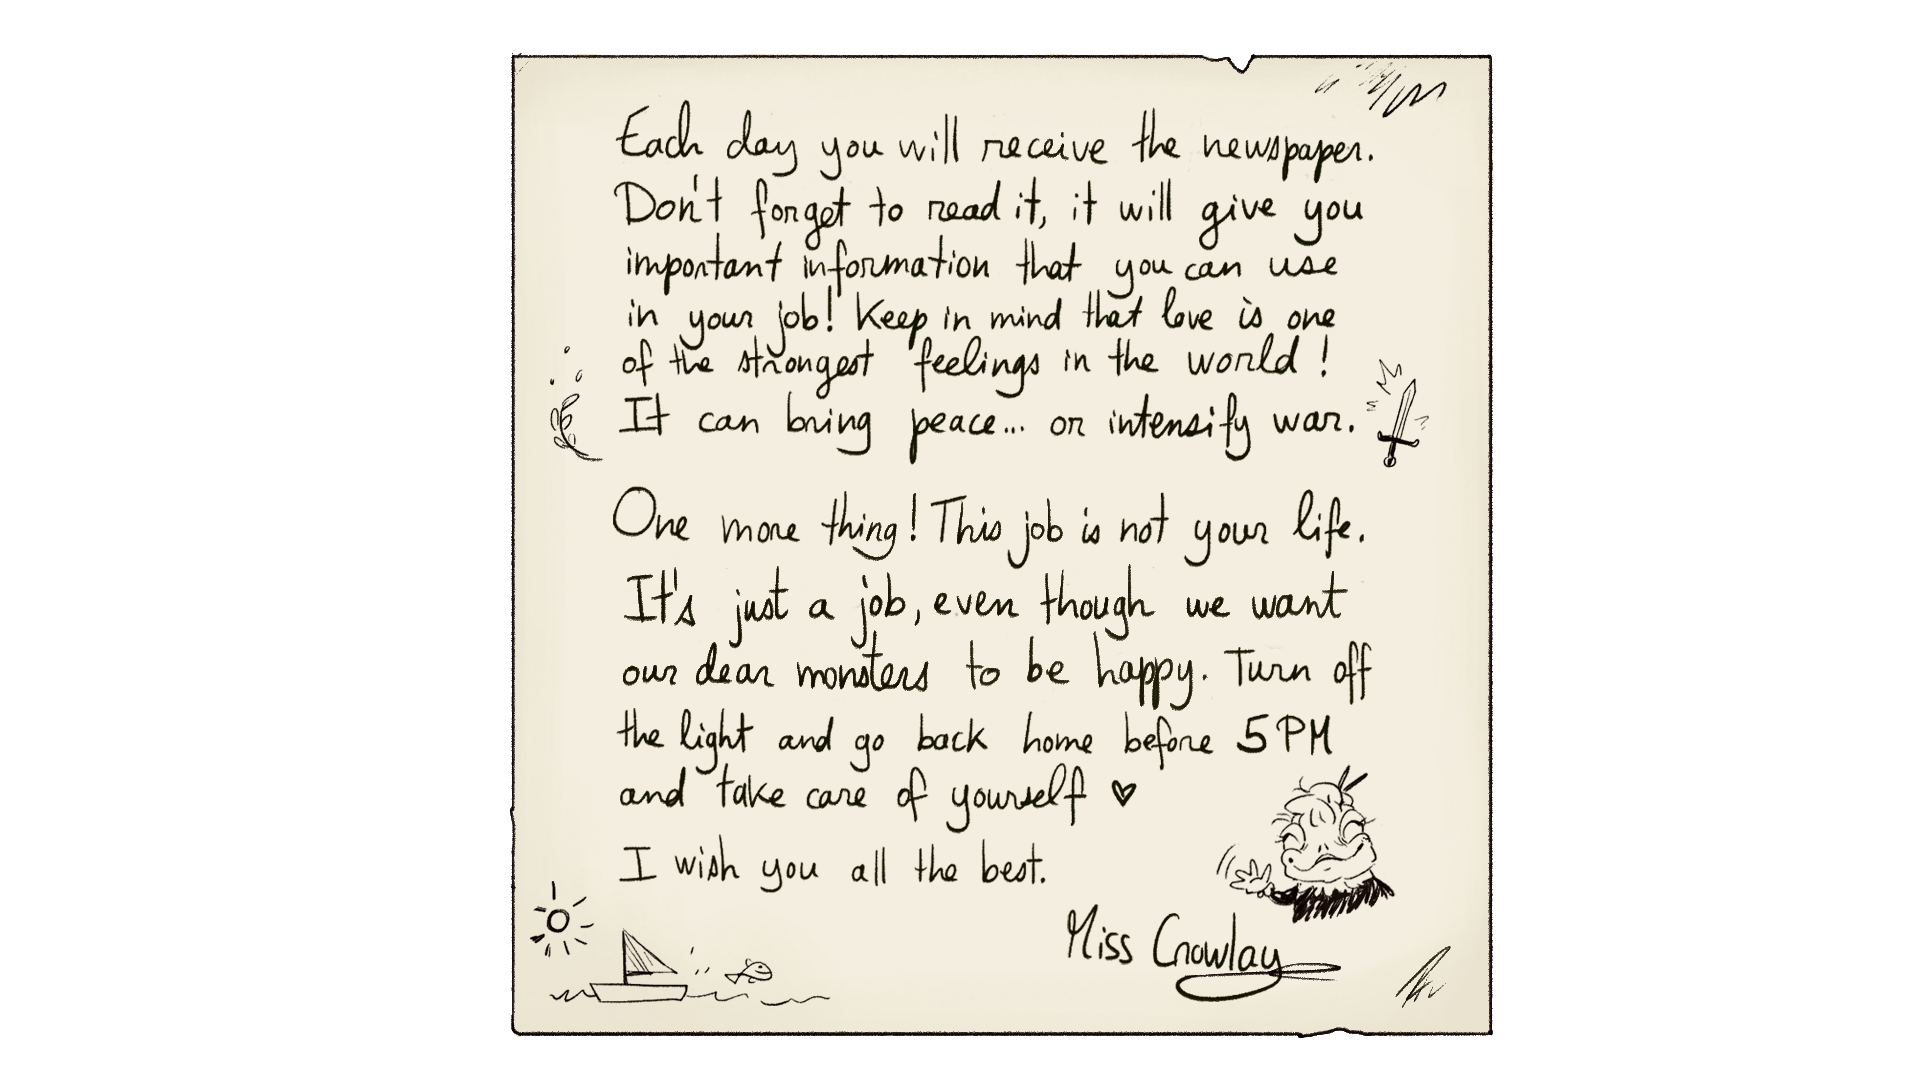 Each day you will receive the newspaper.
Don't forget to read it, it will give you
important information that you can use
in your job! Keep in mind that love is one
of the strongest feelings in the world !
It can bring peace... or intensify war.
One more thing! This job is not your life.
It's just a job, even though we want
our dear monsters to be happy. Turn off
the light and go back home before 5 PM
and take care of yourself ♥
I wish you all the best.
Miss Crowlay